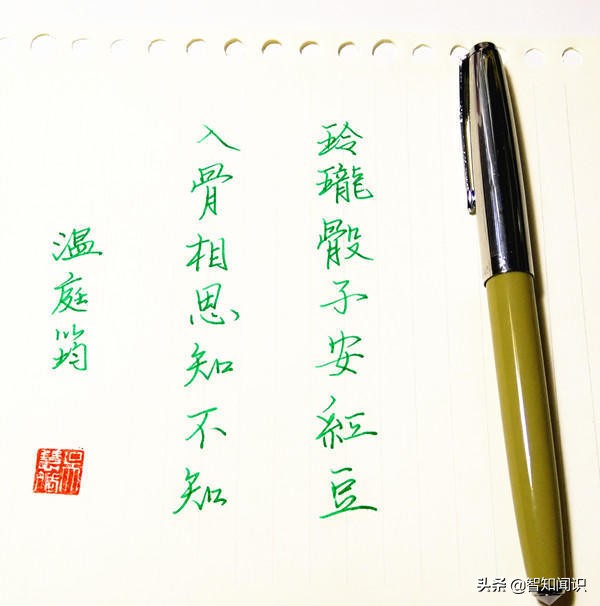 玲瓏骰子安紅豆
入骨相思知不知
溫庭筠
头条 @智知闻识